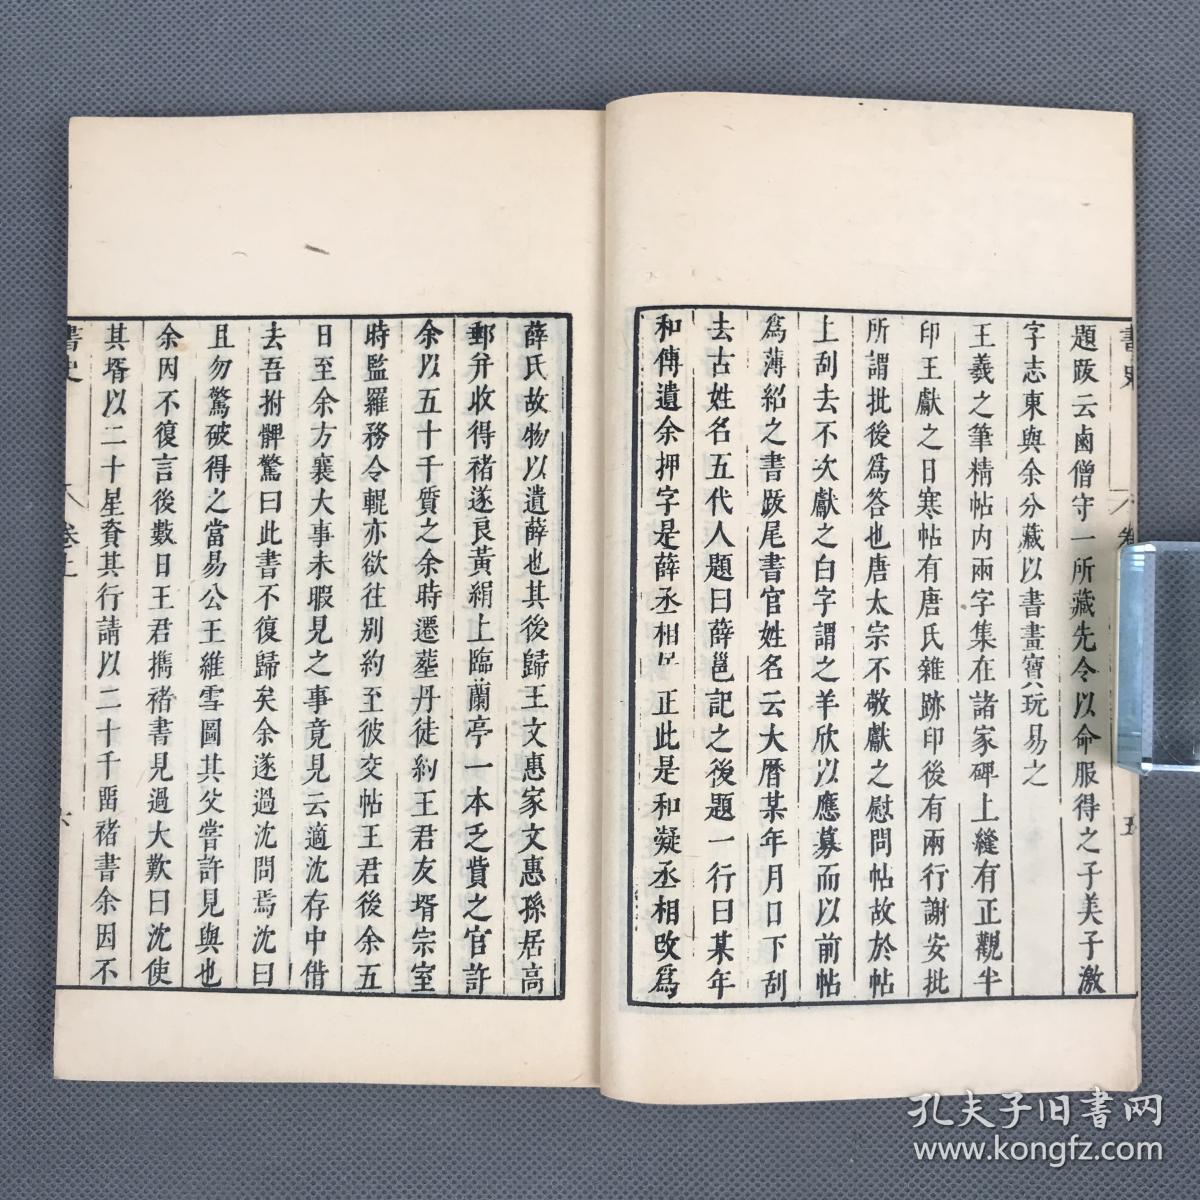 書史
卷
五
題跋云鹵僧守一所藏先令以命服得之子美子激
字志東與余分藏以書畫寶玩易之
王羲之筆精帖内兩字集在諸家碑上縫有正觀半
印王獻之日寒帖有唐氏雜跡印後有兩行謝安批
所謂批後爲答也唐太宗不敬獻之慰問帖故於帖
上刮去不次獻之白字謂之羊欣以應募而以前帖
爲薄紹之書跋尾書官姓名云大曆某年月日下刮
去古姓名五代人題曰薛邕記之後題一行曰某年
和傳遺余押字是薛丞相居正此是和凝丞相改爲
薛氏故物以遺薛也其後歸王文惠家文惠孫居高
郵并收得褚遂良黃絹上臨蘭亭一本乏貲之官許
余以五十千質之余時遷塟丹徒約王君友壻宗室
時監羅務令輥亦欲往别約至彼交帖王君後余五
日至余方襄大事未暇見之事竟見云適沈存中借
去吾拊髀驚曰此書不復歸矣余遂過沈問焉沈曰
且勿驚破得之當易公王維雪圖其父嘗許見與也
余因不復言後數日王君攜褚書見過大歎曰沈使
其壻以二十星賫其行請以二十千畱褚書余因不
書史
卷上
六
孔夫子旧书网
www.kongfz.com